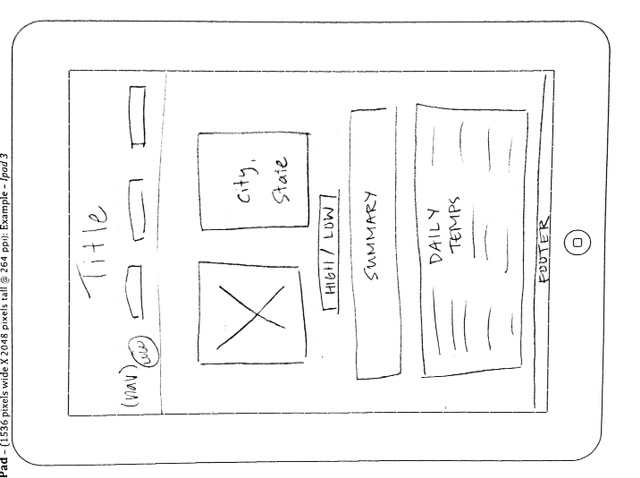 Pad - (1536 pixels wide X 2048 pixels tall @ 264 ppi): Example - Ipad 3
Title
(nav)
City,
State
HIGH / LOW
SUMMARY
DAILY
TEMPS
FOOTER